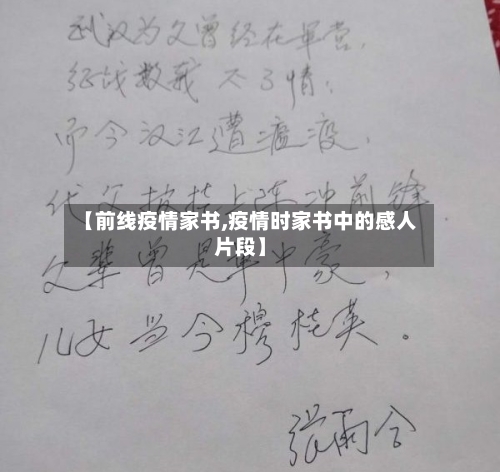 武汉为父曾经在军营,
征战数载不了情;
而今汉江遭瘟疫,
代父披挂上阵冲前锋.
【前线疫情家书,疫情时家书中的感人
片段】
父辈曾是军中豪,
儿女当今穆桂英。
张雨合